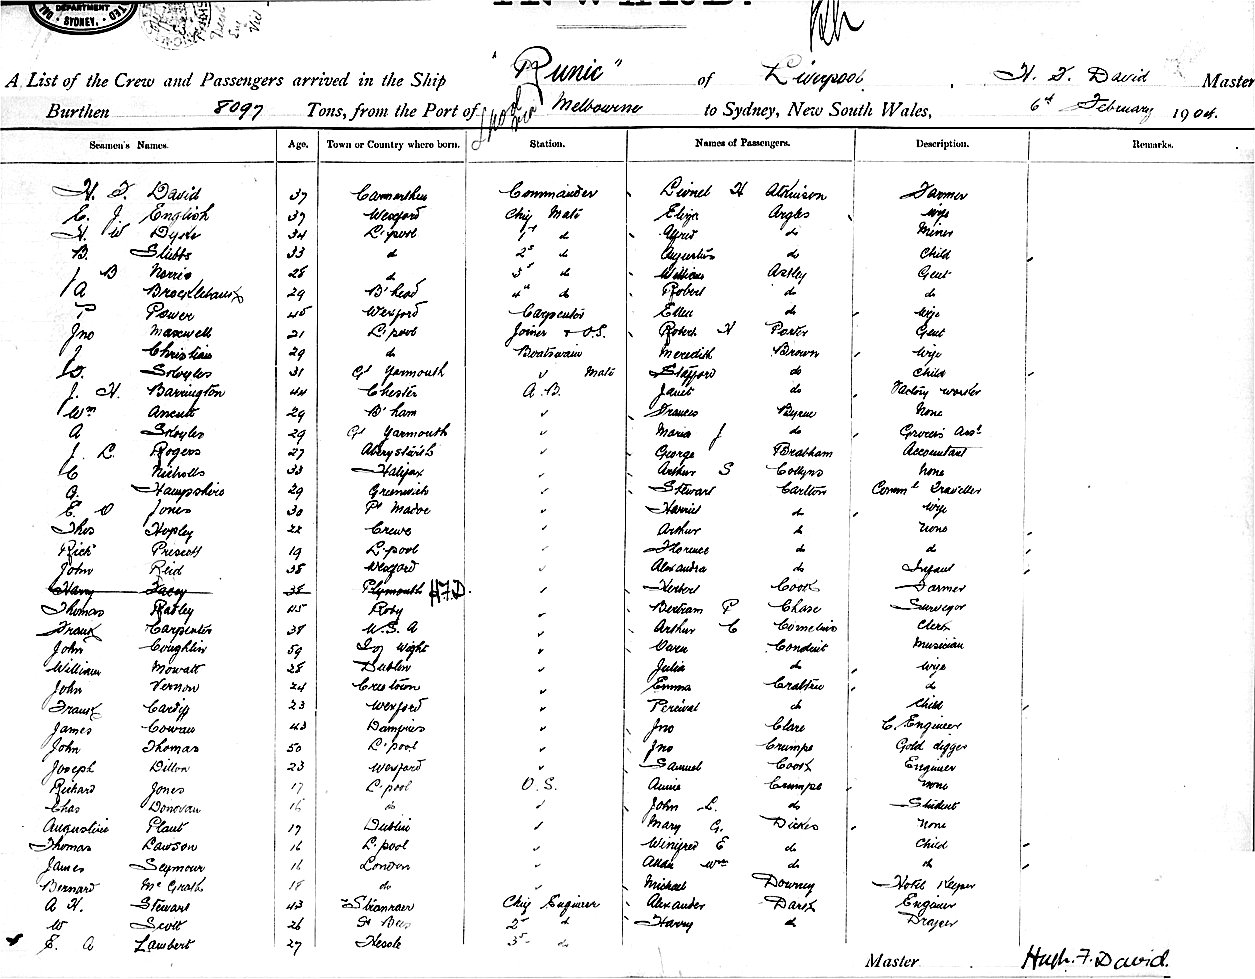 INWARD.
DEPARTMENT
SYDNEY.
A List of the Crew and Passengers arrived in the Ship "Runic" of Liverpool, H. F. David Master
Burthen 8097 Tons, from the Port of Melbourne to Sydney, New South Wales, 6th February 1904.
Seamen's Names. Age. Town or Country where born. Station. Names of Passengers. Description. Remarks.
H. F. David 37 Carmarthen Commander Lionel H Atkinson Farmer
C. J. English 37 Wexford Chief Mate Eliza Angles wife
H. W Dyke 34 L'pool 1st d Alfred do Miner
B. Stubbs 33 d 2d d Augustus do Child
J B Norris 28 do 3d d William Astley Gent
A Brocklebank 29 B'head 4th d Robert do do
P Power 45 Wexford Carpenter Ellen do wife
Jno Maxwell 21 L'pool Joiner & O.S. Robert H Porter Gent
J. Christian 29 do Boatswain Meredith Brown Wife
Skoyles 31 Gt Yarmouth " Mate Stafford do Child
J. H. Barrington 44 Chester A.B. Janet do Factory worker
Wm 29 B'ham " Frances Byrne None
A Skoyles 29 Gt Yarmouth " Maria J do Grocers Asst
J. L. Rogers 27 Aberystwith " George Bratham Accountant
C Nicholls 33 Halifax " Arthur S Collyns None
G. Hampshire 29 Greenwich " Stewart Carlton Comml Traveller
E. O Jones 30 Pt Madoc " Harriet do wife
Thos Hopley 22 Crewe " Arthur do None
Richd Prescott 19 L'pool " Florence do do
John Reid 38 Wexford " Alexandra do Infant
Harry Facey 38 Plymouth H.F.D. " Herbert Cook Farmer
Thomas Radley 45 Roby " Bertram P Chase Surveyor
Frank Carpenter 38 U.S.A " Arthur C Cornelius Clerk
John Coughlin 59 I of Wight " Conduit Musician
William Mowatt 28 Dublin " Julia do wife
John Vernon 24 " Emma Crabtree do
Frank Cardiff 23 Wexford " Percival do Child
James Cowan 43 Dumfries " Jno Clare C. Engineer
John Thomas 50 L'pool " Jno Crumpe Gold digger
Joseph Dillon 23 Wexford " Samuel Cook Engineer
Richard Jones 17 L'pool O.S. Annie Crumpe None
Chas Donovan 16 do " John L. do Student
Augustine Plant 17 Dublin " Mary G. Dickes None
Thomas Lawson 16 L'pool " Winifred E do Child
James Seymour 16 London " Allan Wm do do
Bernard McGrath 18 do " Michael Downey Hotel Keeper
A H. Stewart 43 Stranraer Chief Engineer Alexander Darex Engineer
W Scott 26 St Bees 2d d Harry d Draper
E. A Lambert 27 Hessle 3d do
Master Hugh. F. David.